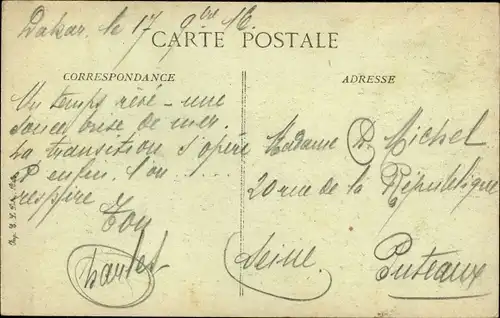 Dakar, le 17 9bre 16.
CARTE POSTALE
CORRESPONDANCE
Un temps rêvé – une
douce brise de mer.
La transition s'opère
& enfin l'on
respire
Ton
Charles
ADRESSE
Madame D. Michel
20 rue de la République
Puteaux
Seine.